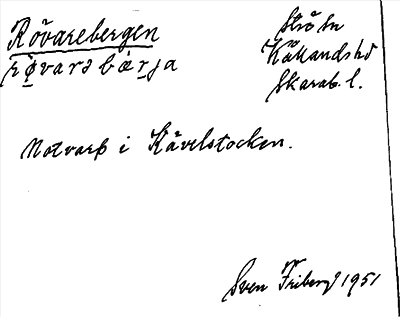 Rövarebergen
rövarə bærja
Strö sn
Kållands hd
Skarab. l.
Notvarp i Kävelstocken.
Sven Friberg 1951